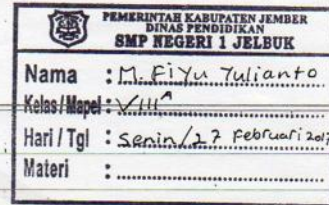 PEMERINTAH KABUPATEN JEMBER
DINAS PENDIDIKAN
SMP NEGERI 1 JELBUK
Nama : M. Fiyu Yulianto
Kelas/Mapel : VIII A
Hari / Tgl : Senin/27 Februari 2017
Materi :